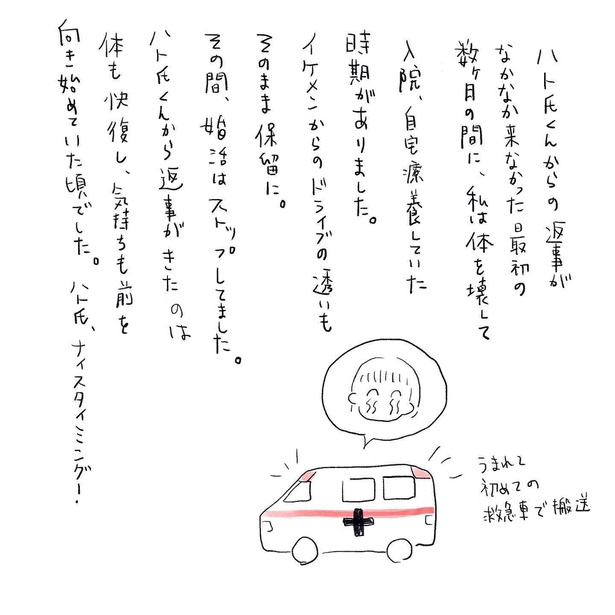 ハト氏くんからの返事が
なかなか来なかった最初の
数ヶ月の間に、私は体を壊して
入院、自宅療養していた
時期がありました。
イケメンからのドライブの誘いも
そのまま保留に。
その間、婚活はストップしてました。
ハト氏くんから返事がきたのは
体も快復し、気持ちも前を
向き始めていた頃でした。ハト氏、ナイスタイミング!
うまれて
初めての
救急車で搬送